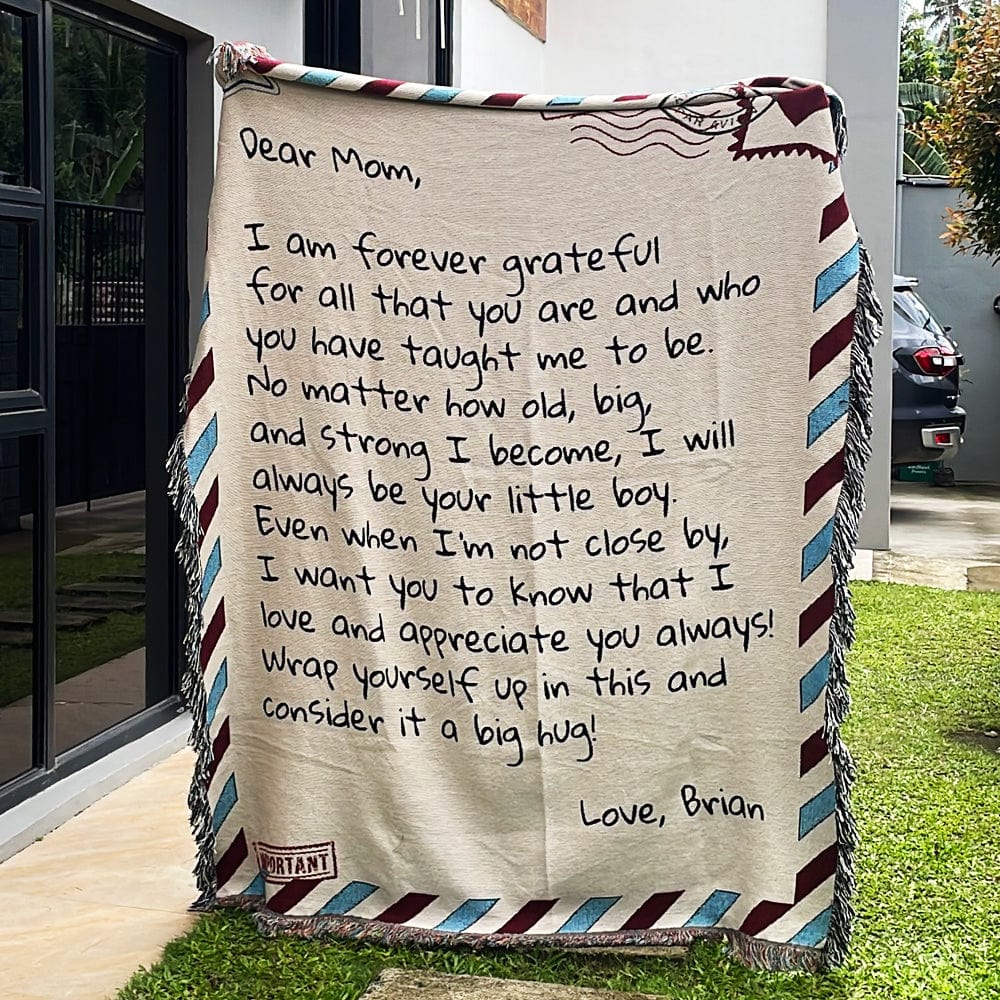 PAR AVI
Dear Mom,
I am forever grateful
for all that you are and who
you have taught me to be.
No matter how old, big,
and strong I become, I will
always be your little boy.
Even when I'm not close by,
I want you to know that I
love and appreciate you always!
Wrap yourself up in this and
consider it a big hug!
Love, Brian
PORTANT